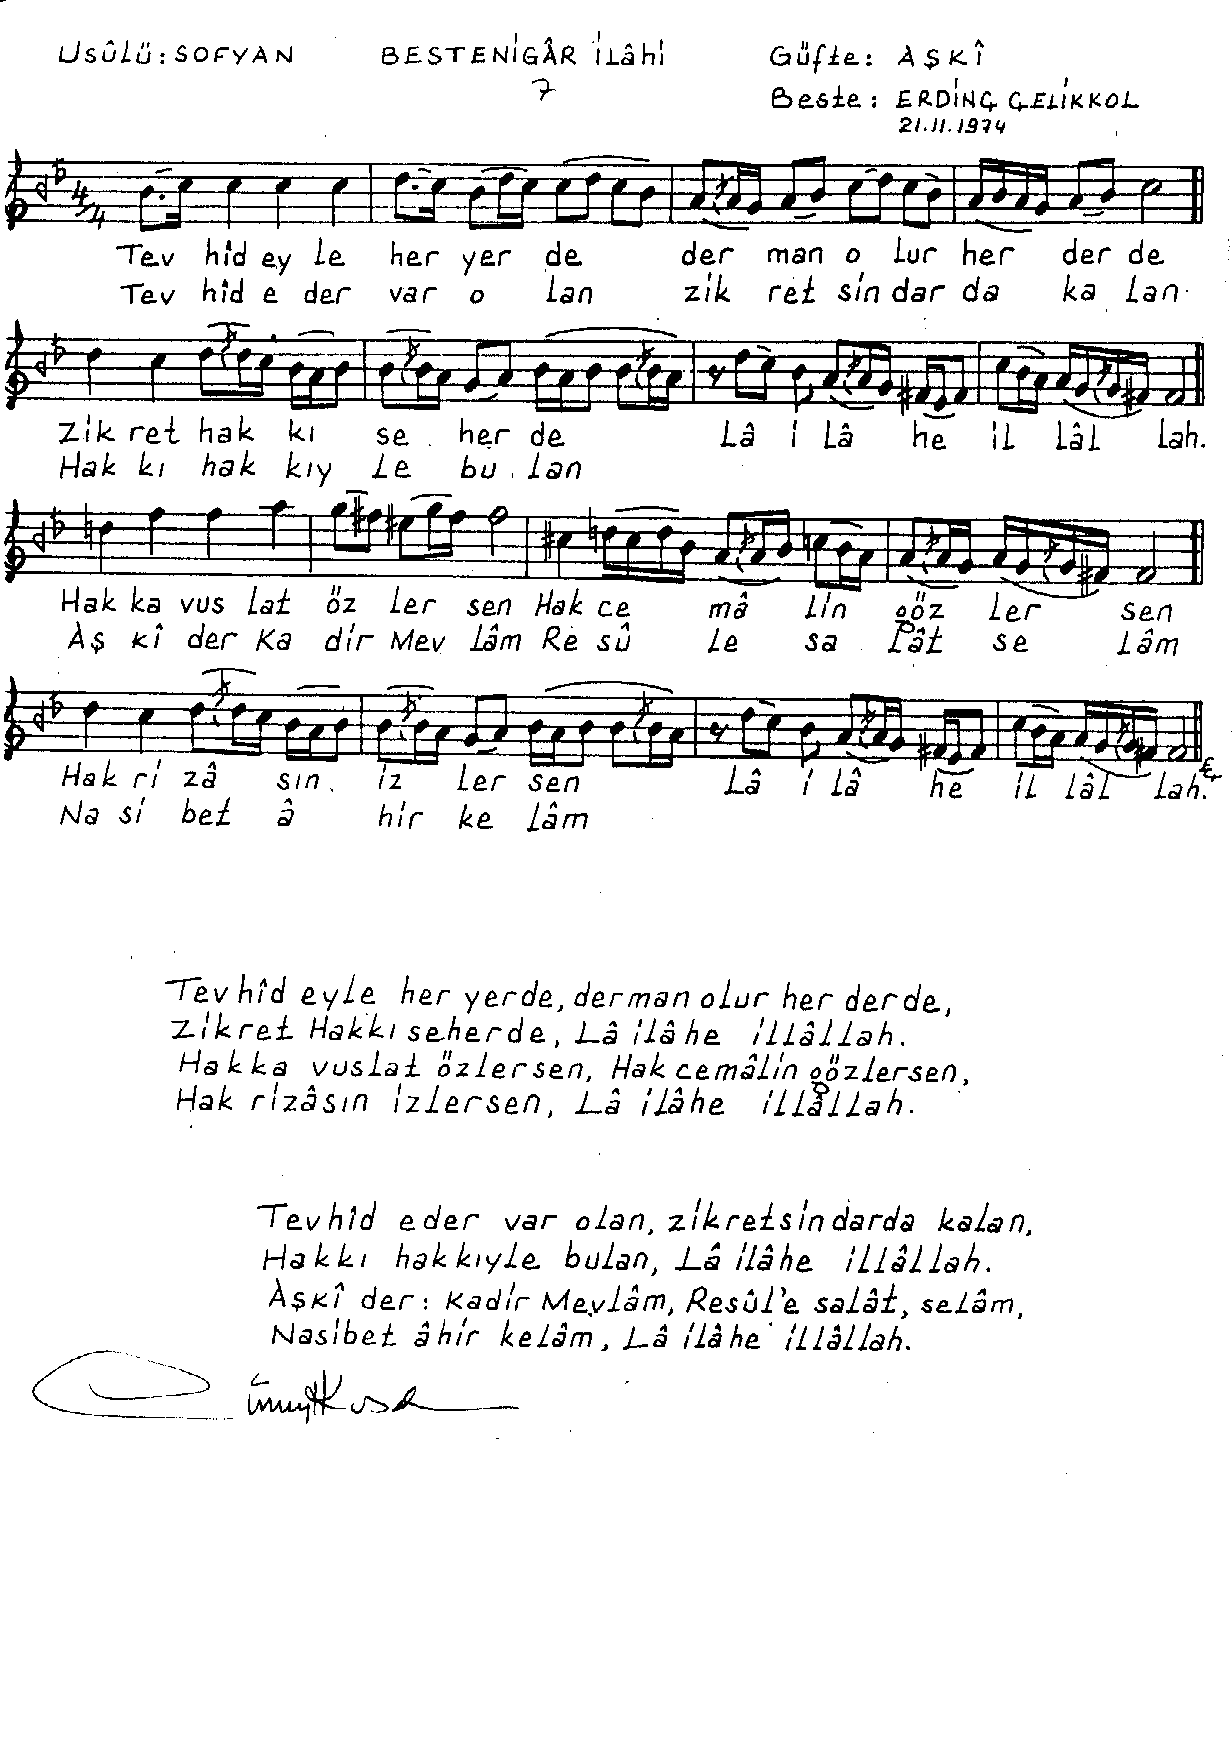 Usûlü: SOFYAN BESTENİGÂR İLâhi Güfte: AŞKÎ
7
Beste: ERDİNÇ ÇELİKKOL
21.11.1974
4/4
Tev hîd ey le her yer de der man o lur her der de
Tev hîd e der var o lan zik ret sin dar da ka lan
Zik ret hak kı se her de Lâ i lâ he il lâl lah.
Hak kı hak kıy le bu lan
Hak ka vus lat öz ler sen Hak ce mâ lin göz ler sen
Aş kî der Ka dir Mev lâm Re sû le sa lât se lâm
Hak ri zâ sın iz ler sen Lâ i lâ he il lâl lah.
Na si bet â hir ke lâm
Tevhîd eyle her yerde, derman olur her derde,
Zikret Hakkı seherde, Lâ ilâhe illâllah.
Hakka vuslat özlersen, Hak cemâlin gözlersen,
Hak rizâsın izlersen, Lâ ilâhe illâllah.
Tevhîd eder var olan, zikretsin darda kalan,
Hakkı hakkıyle bulan, Lâ ilâhe illâllah.
Aşkî der: Kadir Mevlâm, Resûl'e salât, selâm,
Nasibet âhir kelâm, Lâ ilâhe illâllah.